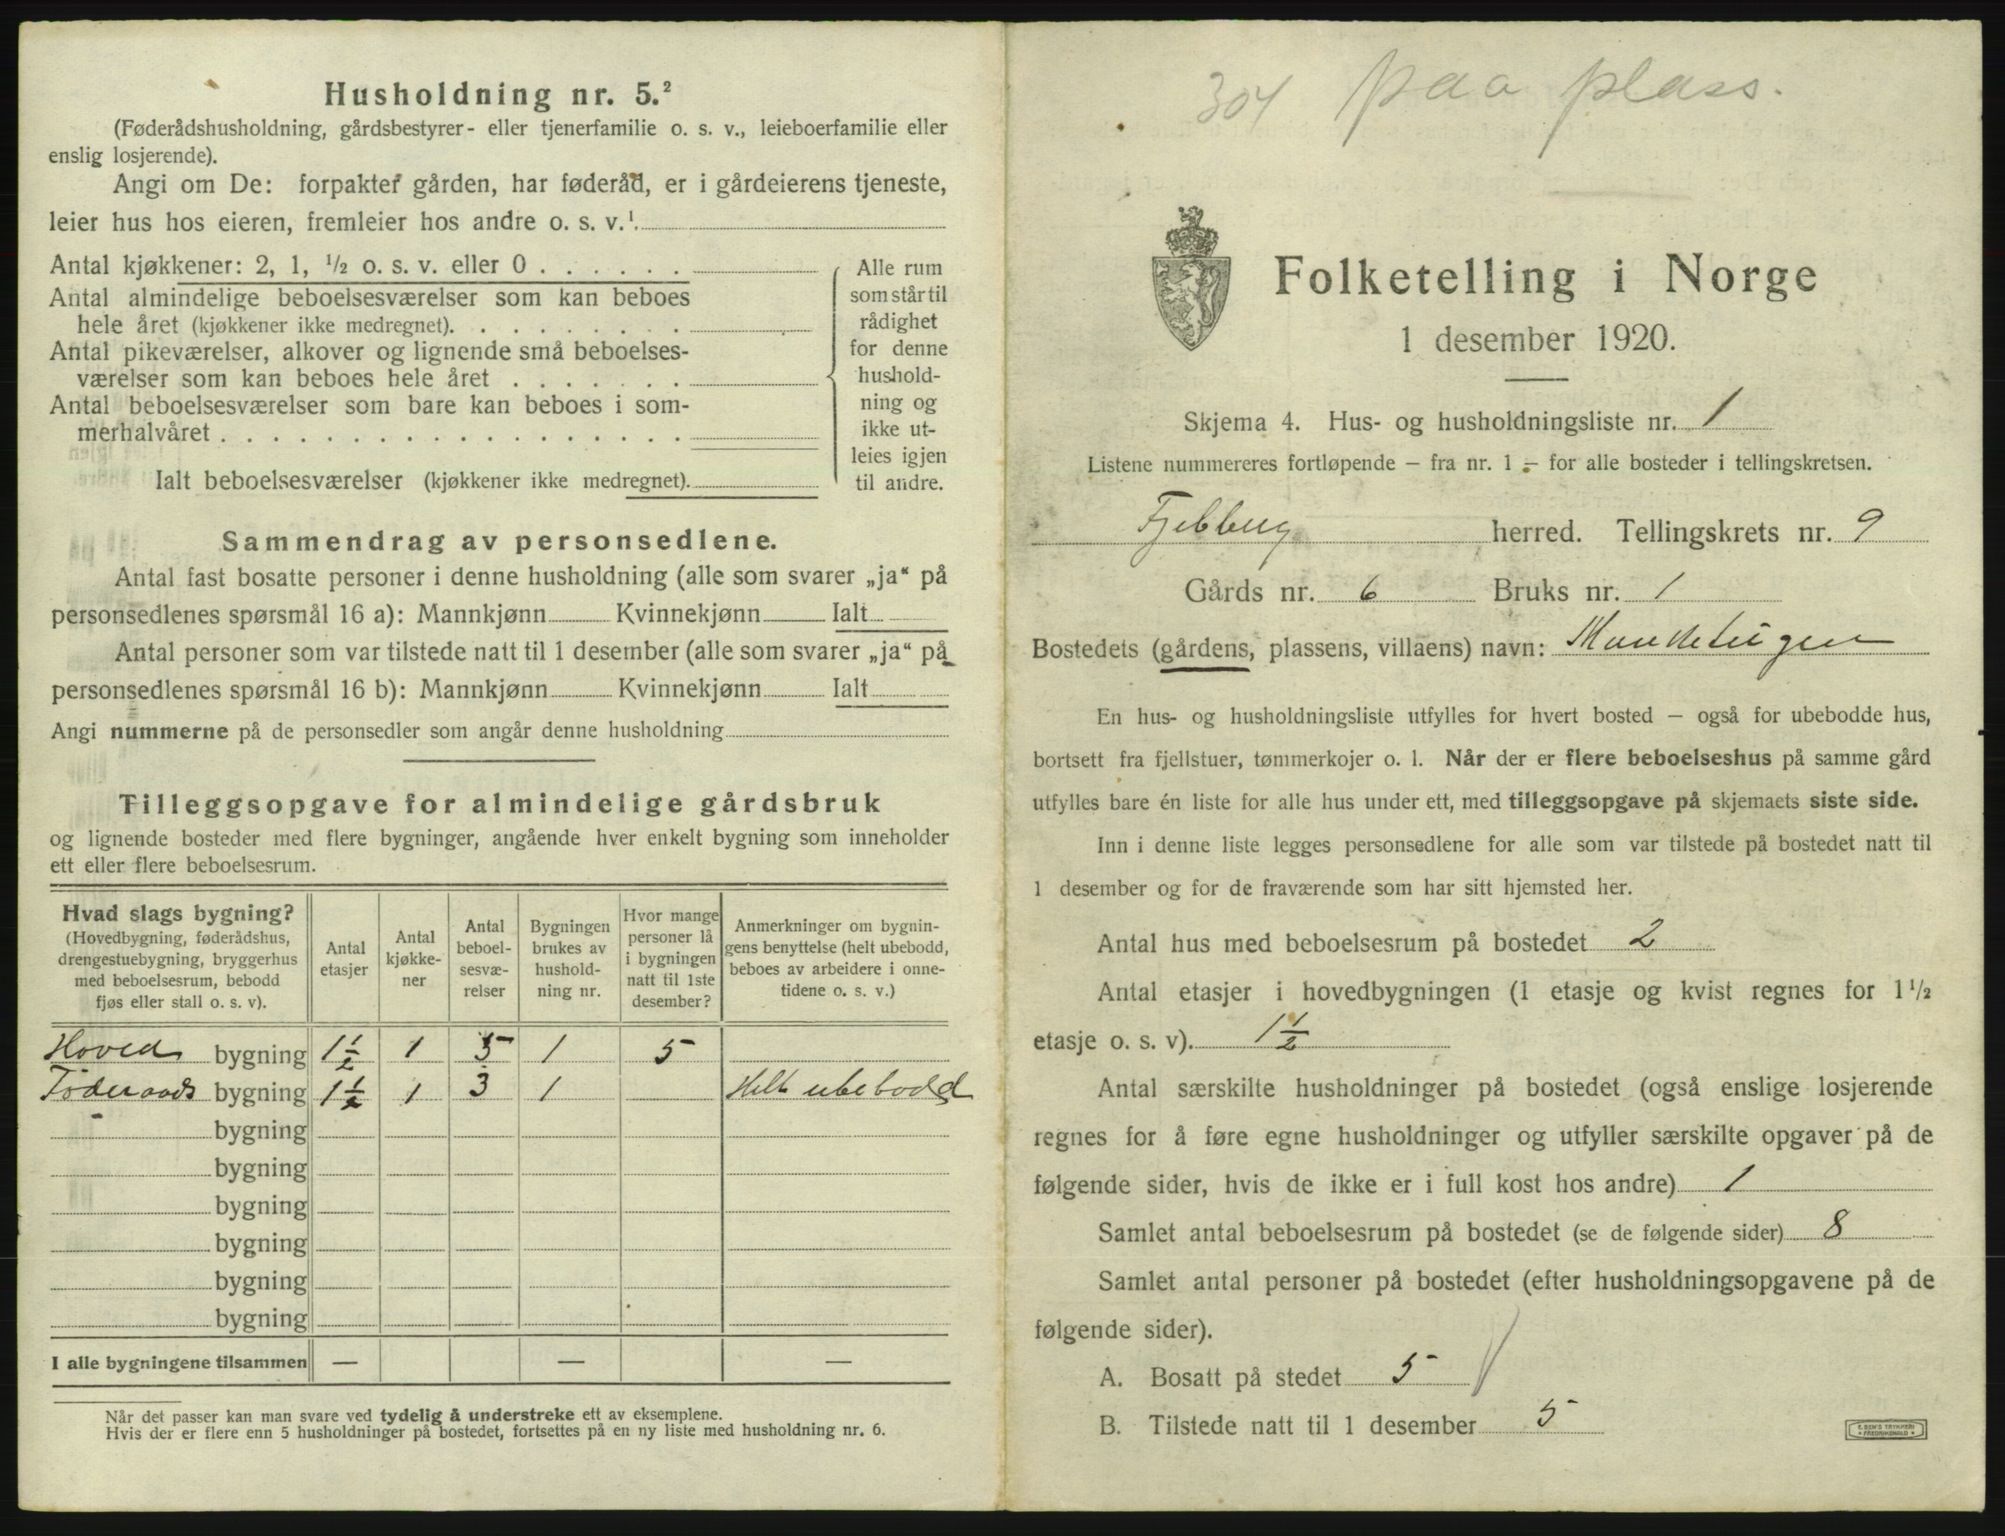 Husholdning nr. 5.²
(Føderådshusholdning, gårdsbestyrer- eller tjenerfamilie o. s. v., leieboerfamilie eller
enslig losjerende).
Angi om De: forpakter gården, har føderåd, er i gårdeierens tjeneste,
leier hus hos eieren, fremleier hos andre o. s. v.¹
Antal kjøkkener: 2, 1, ½ o. s. v. eller 0
Antal almindelige beboelsesværelser som kan beboes
hele året (kjøkkener ikke medregnet).
Antal pikeværelser, alkover og lignende små beboelses-
værelser som kan beboes hele året
Antal beboelsesværelser som bare kan beboes i som-
merhalvåret
Ialt beboelsesværelser (kjøkkener ikke medregnet).
Alle rum
som står til
rådighet
for denne
hushold-
ning og
ikke ut-
leies igjen
til andre.
Sammendrag av personsedlene.
Antal fast bosatte personer i denne husholdning (alle som svarer „ja“ på
personsedlenes spørsmål 16 a): Mannkjønn Kvinnekjønn Ialt
Antal personer som var tilstede natt til 1 desember (alle som svarer „ja“ på
personsedlenes spørsmål 16 b): Mannkjønn Kvinnekjønn Ialt
Angi nummerne på de personsedler som angår denne husholdning
Tilleggsopgave for almindelige gårdsbruk
og lignende bosteder med flere bygninger, angående hver enkelt bygning som inneholder
ett eller flere beboelsesrum.
Hvad slags bygning?
(Hovedbygning, føderådshus,
drengestuebygning, bryggerhus
med beboelsesrum, bebodd
fjøs eller stall o. s. v).
Antal
etasjer
Antal
kjøkke-
ner
Antal
beboel-
sesvæ-
relser
Bygningen
brukes av
hushold-
ning nr.
Hvor mange
personer lå
i bygningen
natt til 1ste
desember?
Anmerkninger om bygnin-
gens benyttelse (helt ubebodd,
beboes av arbeidere i onne-
tidene o. s. v.)
Hoved bygning 1½ 1 5 1 5
Föderaads bygning 1½ 1 3 1 Helt ubebodd
bygning
bygning
bygning
bygning
bygning
bygning
I alle bygningene tilsammen — — —
Når det passer kan man svare ved tydelig å understreke ett av eksemplene.
Hvis der er flere enn 5 husholdninger på bostedet, fortsettes på en ny liste med husholdning nr. 6.
304 paa plass.
Folketelling i Norge
1 desember 1920.
Skjema 4. Hus- og husholdningsliste nr. 1
Listene nummereres fortløpende – fra nr. 1 – for alle bosteder i tellingskretsen.
Fjelberg herred. Tellingskrets nr. 9
Gårds nr. 6 Bruks nr. 1
Bostedets (gårdens, plassens, villaens) navn:
En hus- og husholdningsliste utfylles for hvert bosted – også for ubebodde hus,
bortsett fra fjellstuer, tømmerkojer o. l. Når der er flere beboelseshus på samme gård
utfylles bare én liste for alle hus under ett, med tilleggsopgave på skjemaets siste side.
Inn i denne liste legges personsedlene for alle som var tilstede på bostedet natt til
1 desember og for de fraværende som har sitt hjemsted her.
Antal hus med beboelsesrum på bostedet 2
Antal etasjer i hovedbygningen (1 etasje og kvist regnes for 1½
etasje o. s. v). 1½
Antal særskilte husholdninger på bostedet (også enslige losjerende
regnes for å føre egne husholdninger og utfyller særskilte opgaver på de
følgende sider, hvis de ikke er i full kost hos andre) 1
Samlet antal beboelsesrum på bostedet (se de følgende sider) 8
Samlet antal personer på bostedet (efter husholdningsopgavene på de
følgende sider).
A. Bosatt på stedet 5
B. Tilstede natt til 1 desember 5